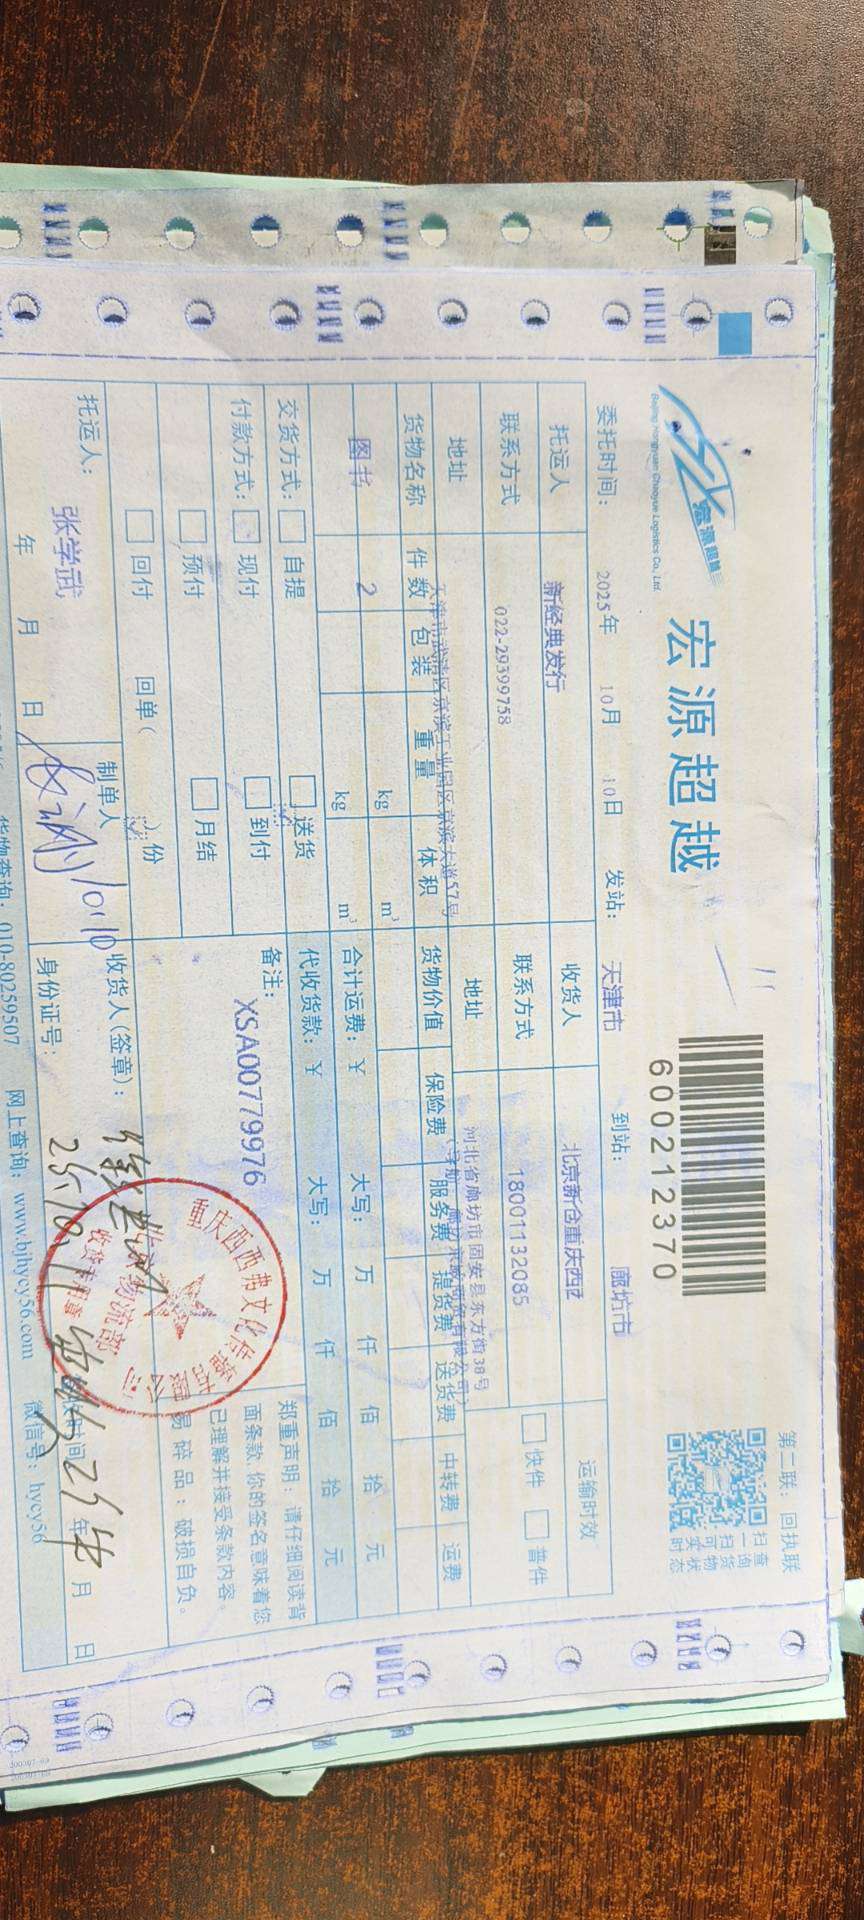 第二联：回执联
宏源超越
Beijing Hongyuan Chaoyue Logistics Co., Ltd.
宏源超越
600212370
扫一扫可实时
查询货物状态
委托时间： 2025年 10月 10日 发站： 天津市 到站： 廊坊市
托运人 新经典发行 收货人 北京新仓重庆西西 运输时效
联系方式 022-29399758 联系方式 18001132085 快件 普件
地址 天津市武清区京滨工业园区京滨大道57号 地址 河北省廊坊市固安县东方街38号
货物名称 件数 包装 重量 体积 货物价值 保险费 服务费 提货费 送货费 中转费 运费
图书 2 kg m³
kg m³ 合计运费：￥ 大写： 万 仟 佰 拾 元
交货方式： 自提 送货 代收货款：￥ 大写： 万 仟 佰 拾 元
付款方式： 现付 到付 备注：
XSA00779976
预付 月结
回付 回单（ ）份
郑重声明：请仔细阅读背
面条款，你的签名意味着您
已理解并接受条款内容。
易碎品：破损自负。
重庆西西弗文化传播有限公司
物流部
收货专用章
托运人： 张学武 制单人 10.10 收货人(签章)：
年 月 日 身份证号： 25.10.11 时间 25年 月 日
货物查询：010-80259507 网上查询：www.bjhycy56.com 微信号：hycy56